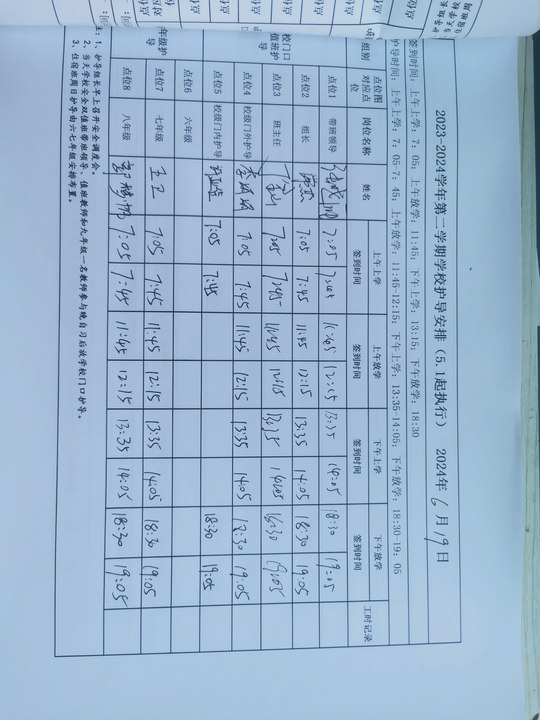 2023-2024学年第二学期学校护导安排（5.1起执行） 2024年 6月19日
签到时间：上午上学：7：05，上午放学：11:45；下午上学：13:15；下午放学：18:30
护导时间：上午上学：7：05-7：45；上午放学：11:45-12:15；下午上学：13:35-14:05；下午放学：18:30-19：05
组别 点位图对应点位 岗位名称 姓名 上午上学签到时间 上午放学签到时间 下午上学签到时间 下午放学签到时间 工时记录
校门口值班护导 点位1 带班领导 7:05 7:45 11:45 12:15 13:35 14:05 18:30 19:05
点位2 组长 7:05 7:45 11:45 12:15 13:35 14:05 18:30 19:05
点位3 班主任 7:05 7:45 11:45 12:15 13:35 14:05 18:30 19:05
点位4 校级门外护导 7:05 7:45 11:45 12:15 13:35 14:05 18:30 19:05
点位5 校级门内护导 7:05 7:45 18:30 19:05
年级护导 点位6 六年级
点位7 七年级 王卫 7:05 7:45 11:45 12:15 13:35 14:05 18:30 19:05
点位8 八年级 7:05 7:45 11:45 12:15 13:35 14:05 18:30 19:05
注：1、护导组长早上召开安全调度会。
2、当天学校安全双值班带班领导、值班教师和九年级一名教师参与晚自习后放学校门口护导。
3、住宿班周日护导由六七年级安排布置。